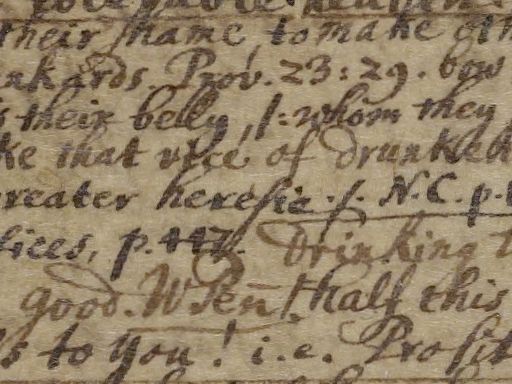 their name, to make oth
akards. Prov. 23:29. bow
s their belly, /: whom they
ke that vice of drunken
reater heresie :/. N.C. p.
lices, p. 447. Drinking
good. When /: half this
s to you! i.e. Prosit